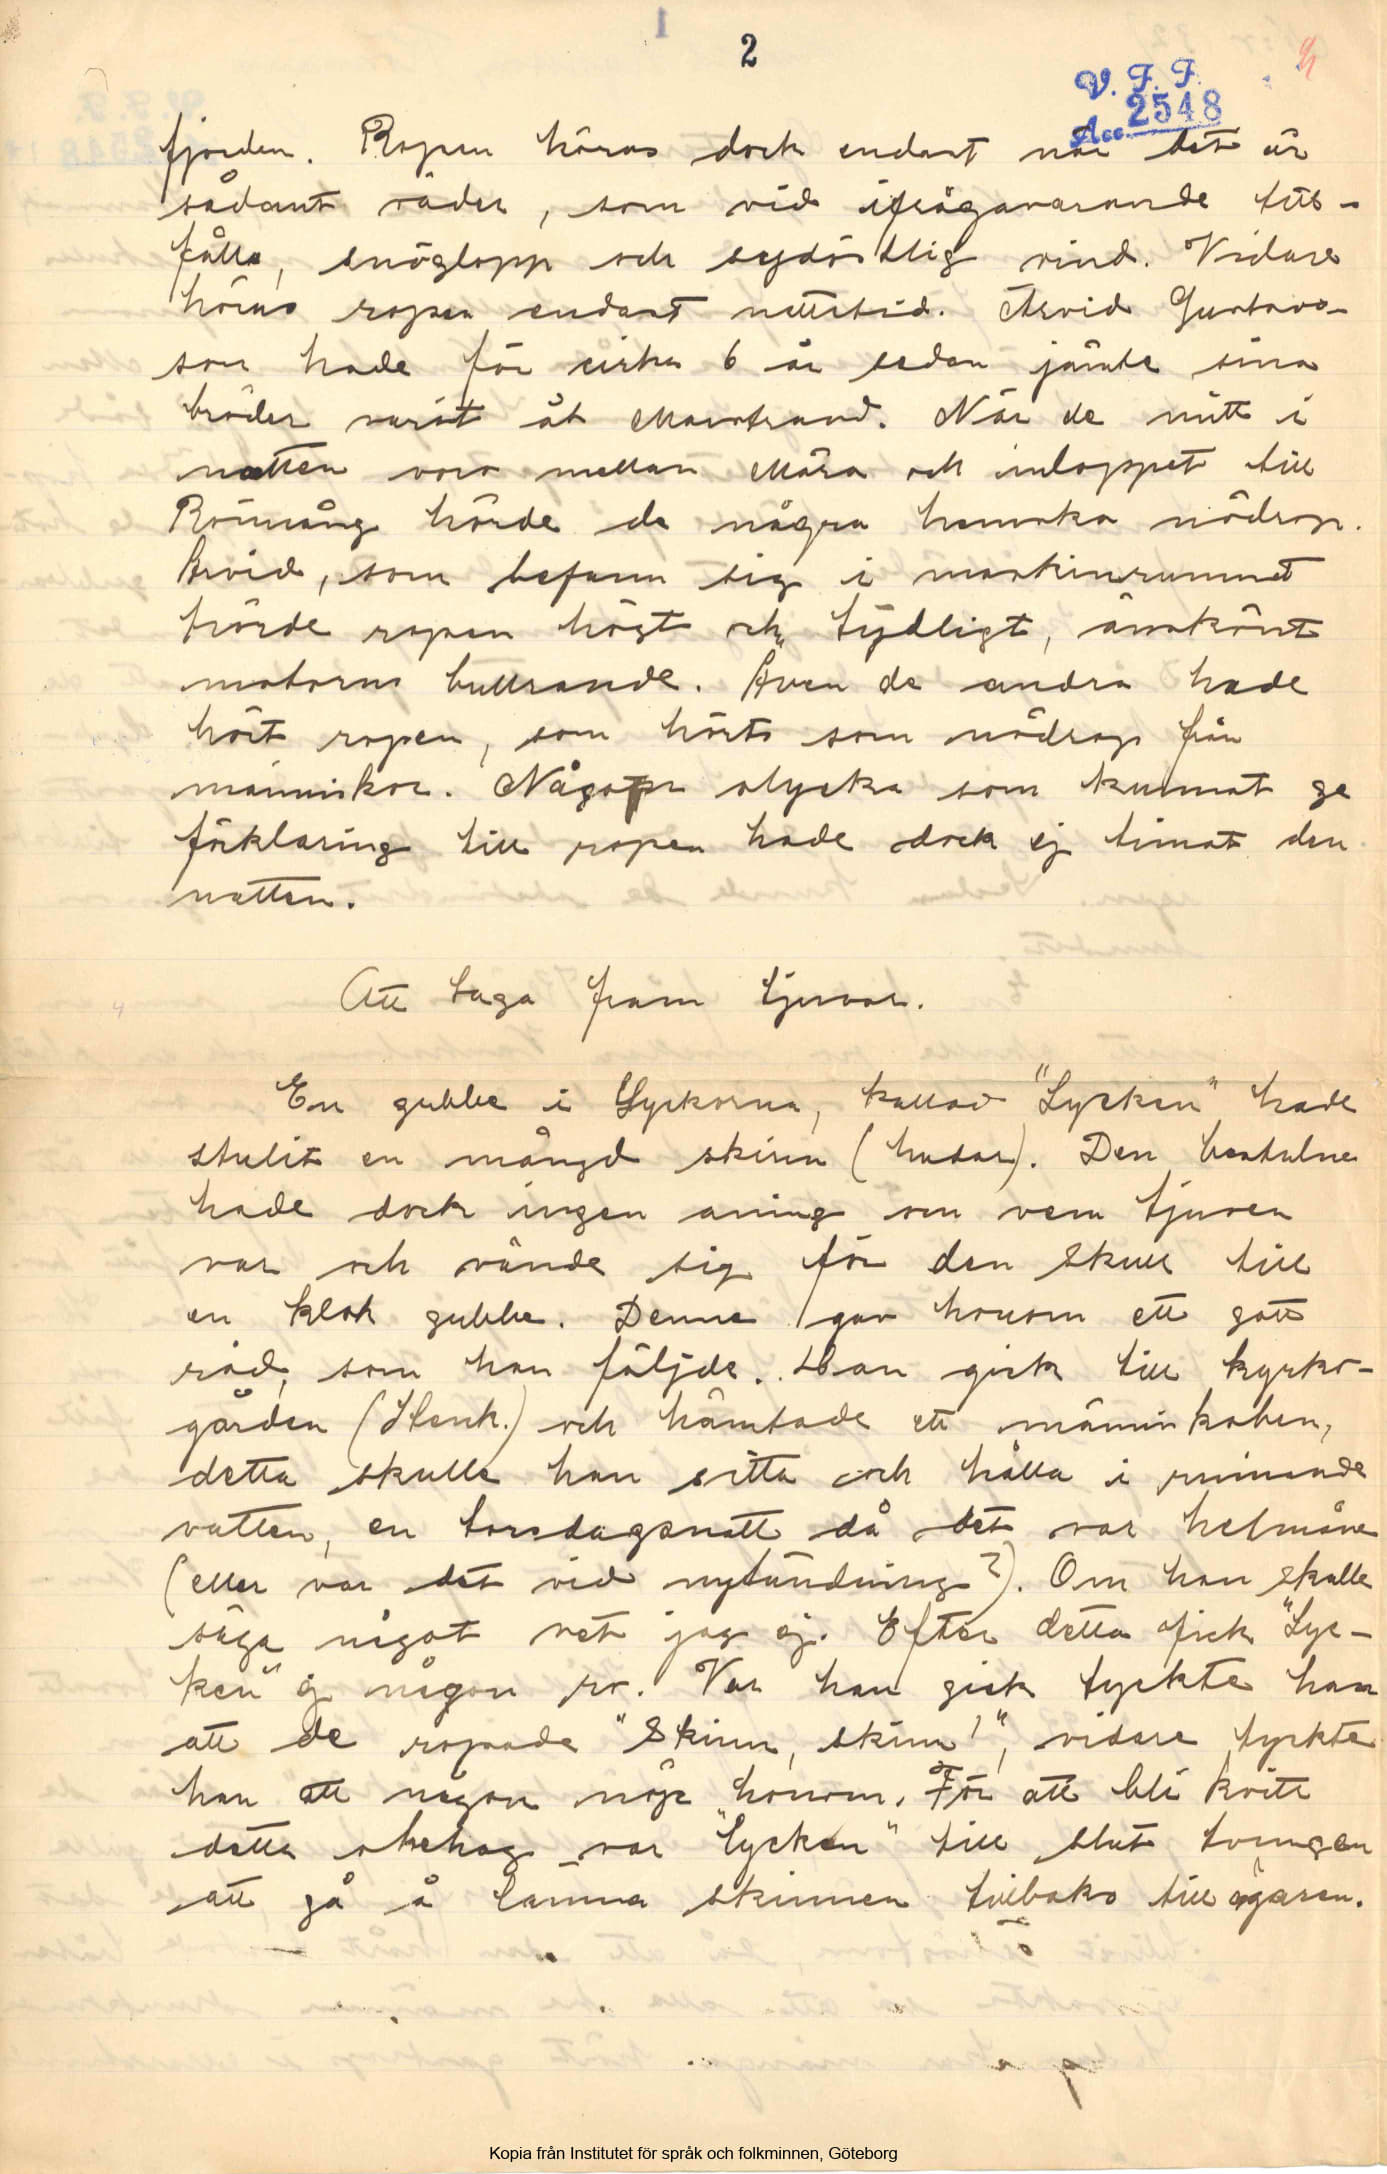 2
V. F. F.
Acc. 2548
fjorden. Ropen höras dock endast när det är
sådant väder, som vid ifrågavarande till-
fälle, snöglopp och sydöstlig vind. Vidare
höras ropen endast nattetid. Arvid Gustavs-
son hade för cirka 6 år sedan jämte sina
bröder varit åt Marstrand. När de mitt i
natten voro mellan Mära och inloppet till
Rönnäng hörde de några hemska nödrop.
Arvid, som befann sig i maskinrummet
hörde ropen högt och tydligt, änskönt
motorns bullrande. Även de andra hade
hört ropen, som hörts som nödrop från
människor. Någon olycka som kunnat ge
förklaring till ropen hade dock ej timat den
natten.
Att taga fram tjuvar.
En gubbe i Lyckorna, kallad "Lycken" hade
stulit en mängd skinn (hudar). Den bestulne
hade dock ingen aning om vem tjuven
var och vände sig för den skull till
en klok gubbe. Denne gav honom ett gott
råd, som han följde. Han gick till kyrko-
gården (Stenk.) och hämtade ett människoben,
detta skulle han sitta och hålla i rinnande
vatten, en torsdagsnatt då det var helmåne
(eller var det vid nytändning?). Om han skulle
säga något vet jag ej. Efter detta fick "Lyc-
ken" ej någon ro. Var han gick tyckte han
att de ropade "Skinn, skinn!", vidare tyckte
han att någon nöp honom. För att bli kvitt
detta obehag var "Lycken" till slut tvungen
att gå å lämna skinnen tillbaka till ägaren.
Kopia från Institutet för språk och folkminnen, Göteborg